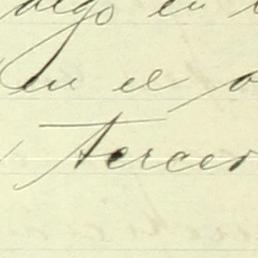 algo en
en el
tercer